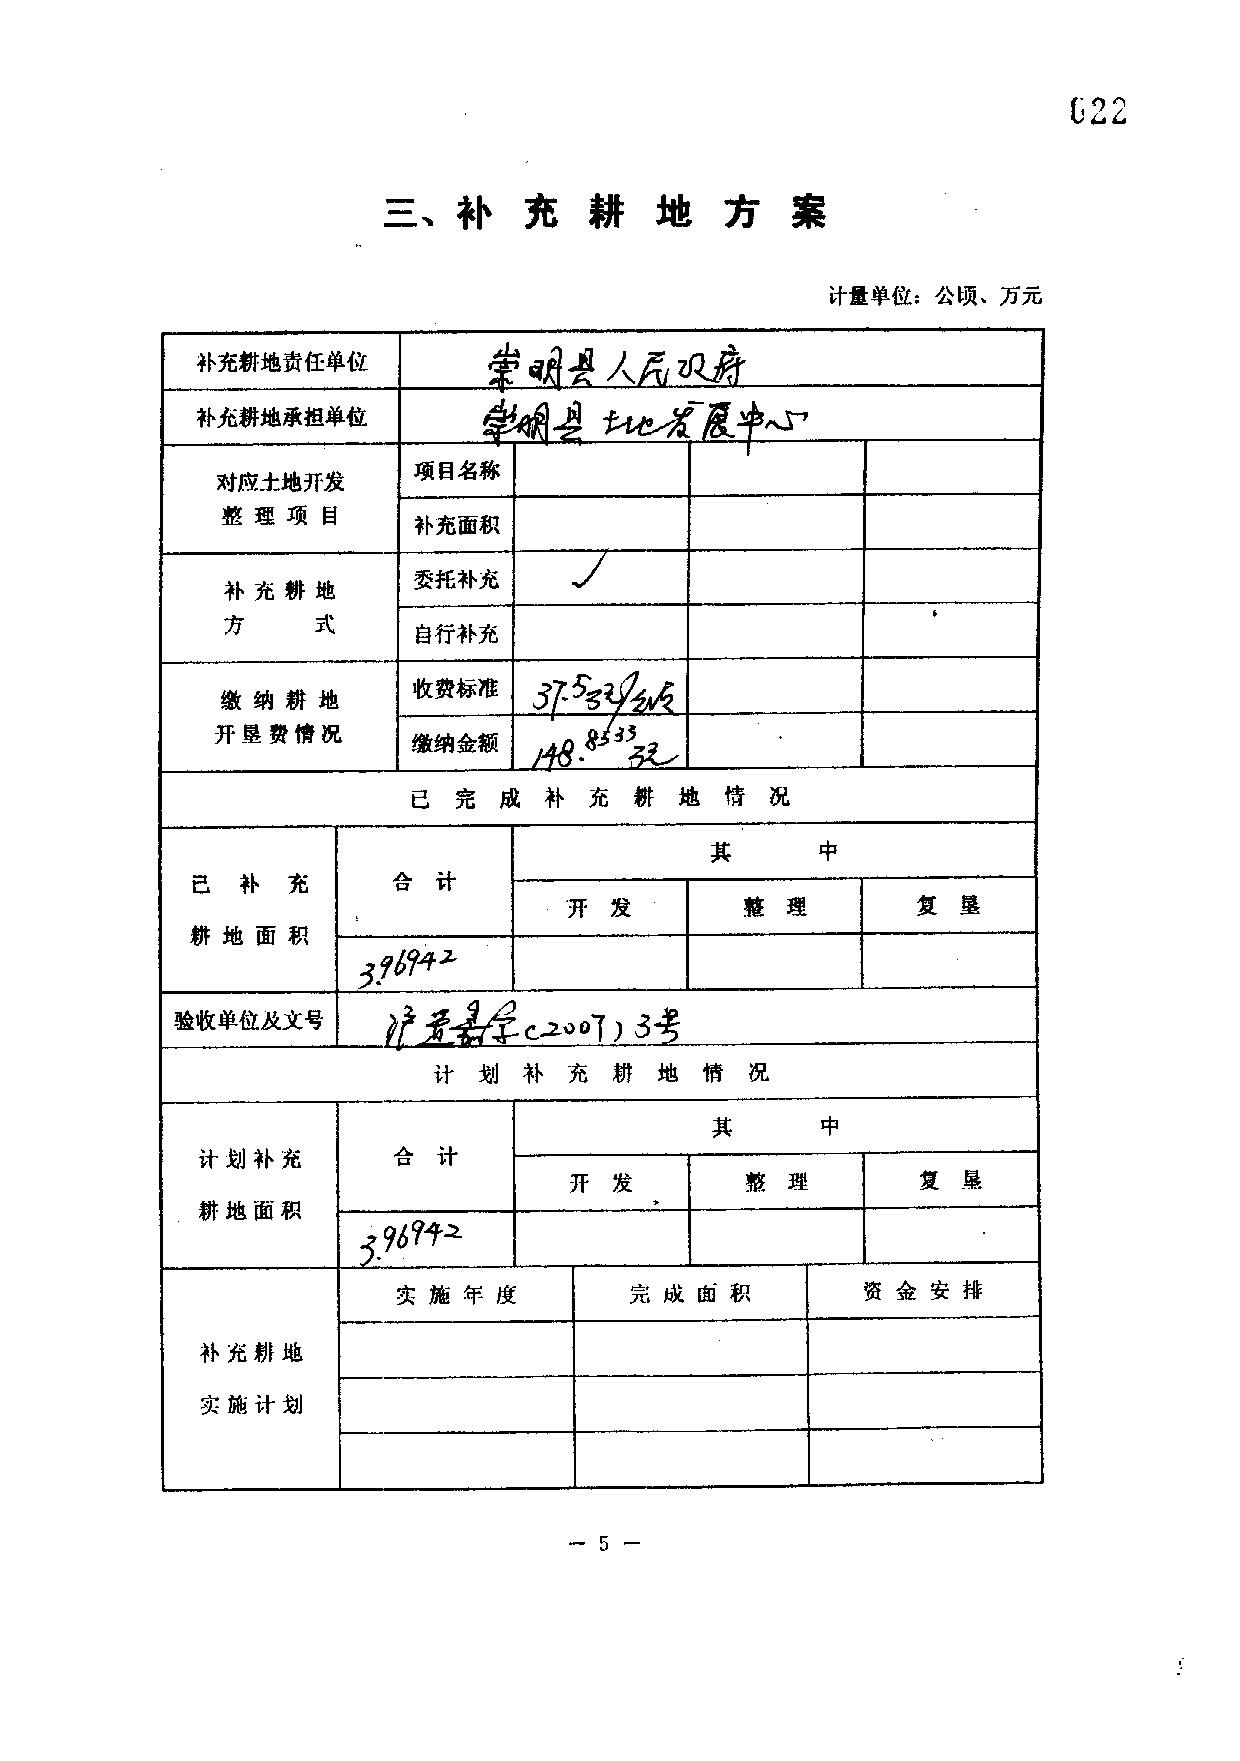 022
三、补充耕地方案
计量单位：公顷、万元
补充耕地责任单位 崇明县人民政府
补充耕地承担单位 崇明县土地发展中心
对应土地开发
整理项目
项目名称
补充面积
补充耕地
方式
委托补充 ✓
自行补充
缴纳耕地
开垦费情况
收费标准 37.5万元/公顷
缴纳金额 148.8533万元
已完成补充耕地情况
已补充
耕地面积
合计
其中
开发 整理 复垦
3.96942
验收单位及文号 (2007)3号
计划补充耕地情况
计划补充
耕地面积
合计
其中
开发 整理 复垦
3.96942
补充耕地
实施计划
实施年度 完成面积 资金安排
— 5 —